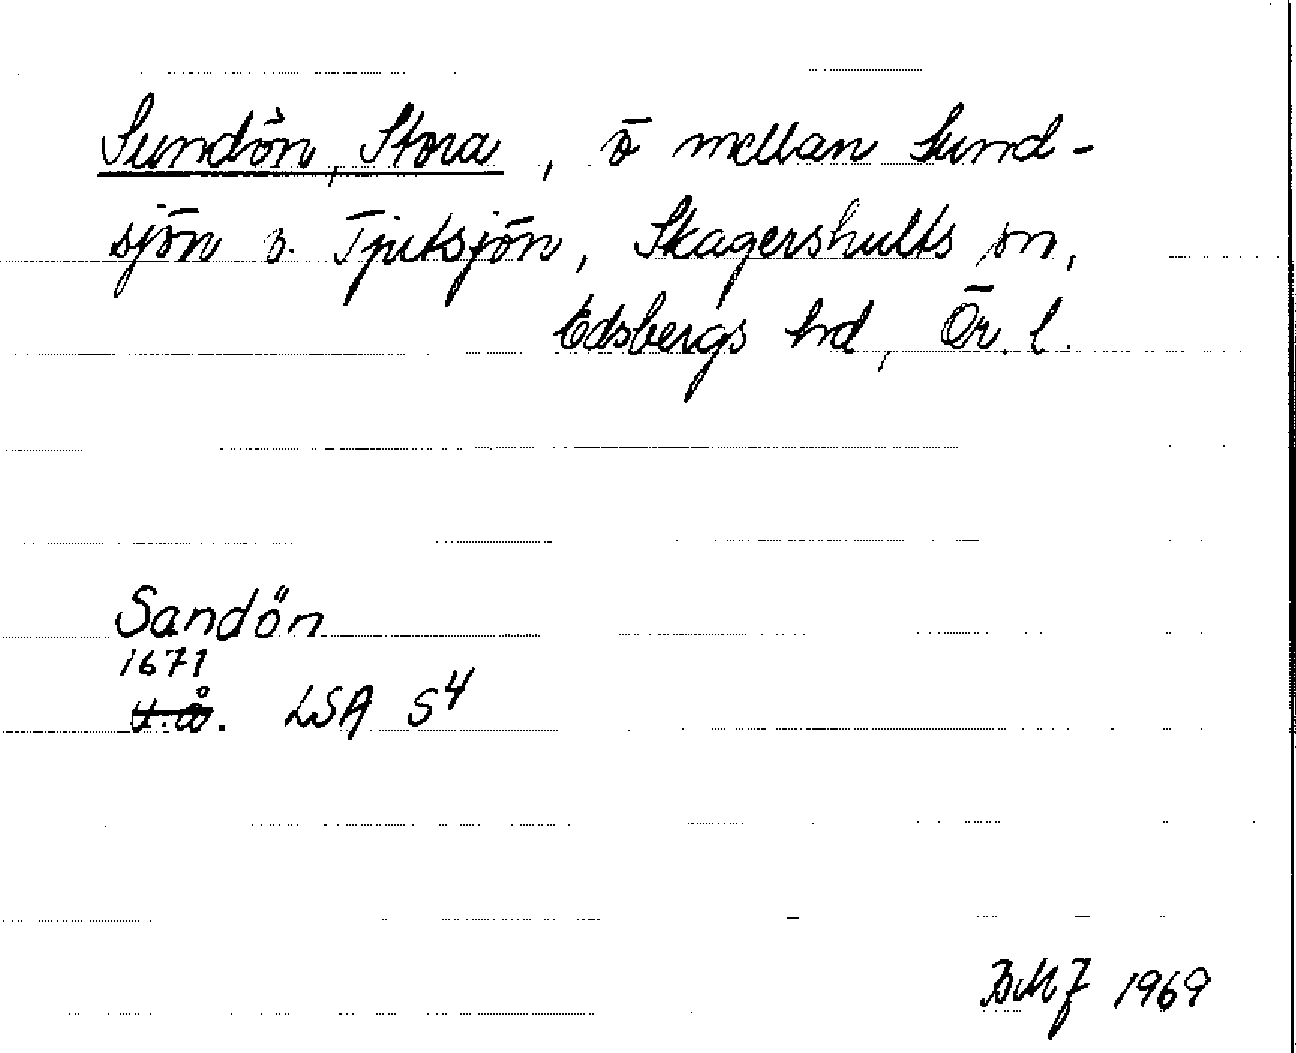 Sundön, Stora, ö mellan Sund-
sjön o. Tjutsjön, Skagershults sn,
Edsbergs hd, Ör. l.
Sandön
1671
u.å. LSA S4
BMJ 1969